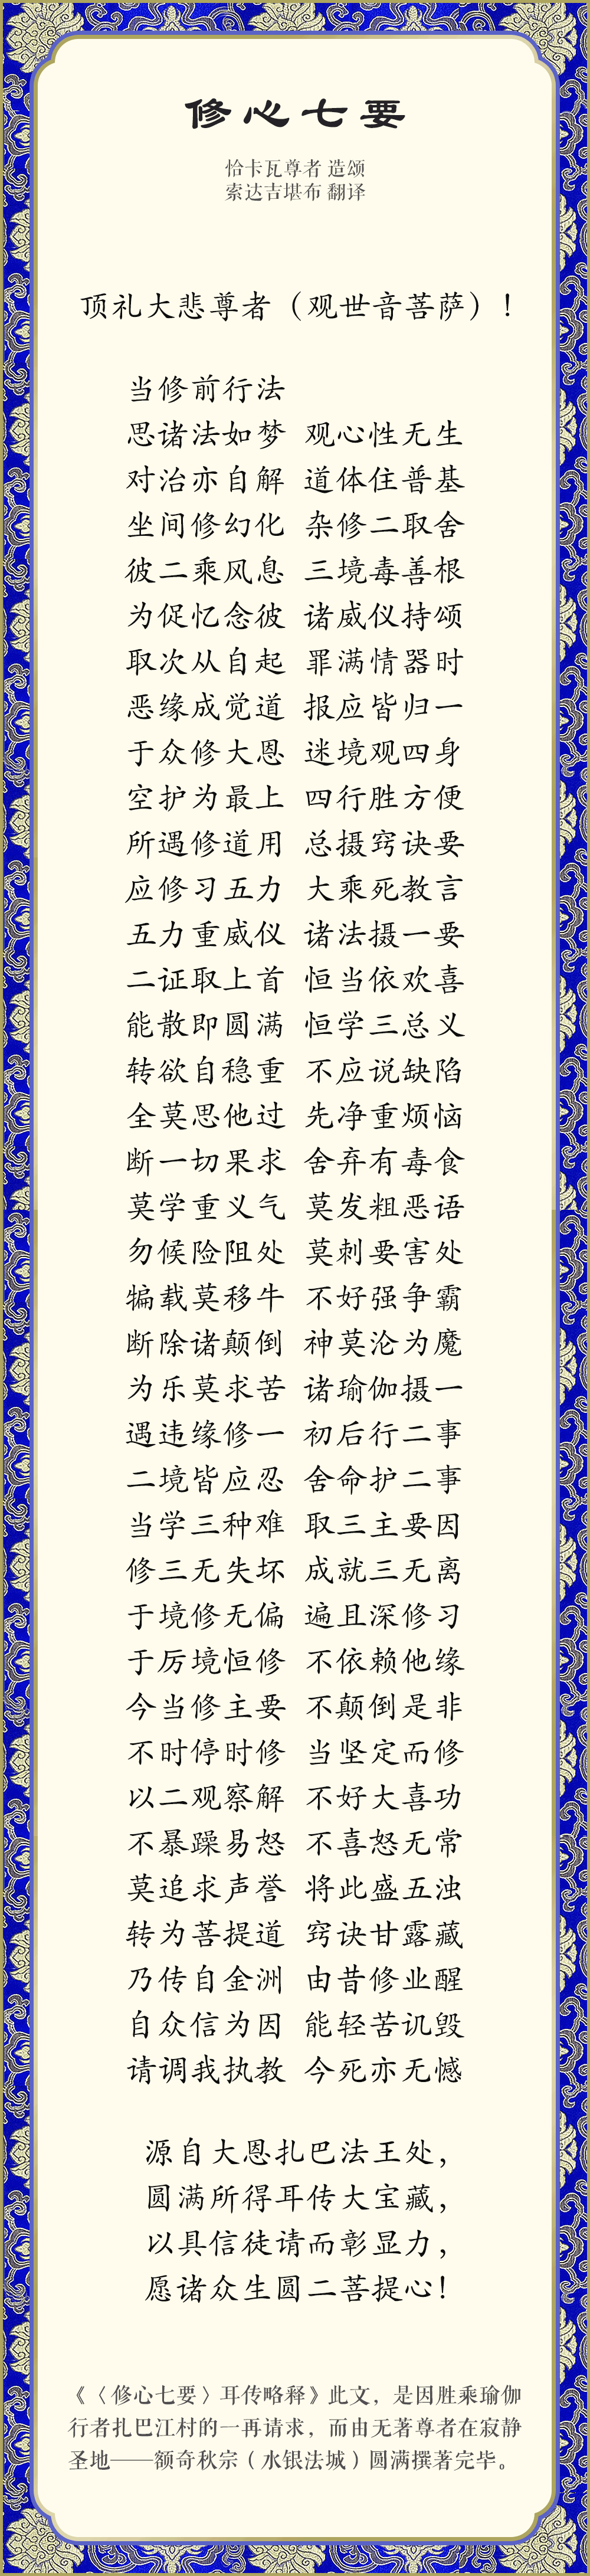 修心七要
恰卡瓦尊者 造颂
索达吉堪布 翻译
顶礼大悲尊者（观世音菩萨）！
当修前行法
思诸法如梦 观心性无生
对治亦自解 道体住普基
坐间修幻化 杂修二取舍
彼二乘风息 三境毒善根
为促忆念彼 诸威仪持颂
取次从自起 罪满情器时
恶缘成觉道 报应皆归一
于众修大恩 迷境观四身
空护为最上 四行胜方便
所遇修道用 总摄窍诀要
应修习五力 大乘死教言
五力重威仪 诸法摄一要
二证取上首 恒当依欢喜
能散即圆满 恒学三总义
转欲自稳重 不应说缺陷
全莫思他过 先净重烦恼
断一切果求 舍弃有毒食
莫学重义气 莫发粗恶语
勿候险阻处 莫刺要害处
犏载莫移牛 不好强争霸
断除诸颠倒 神莫沦为魔
为乐莫求苦 诸瑜伽摄一
遇违缘修一 初后行二事
二境皆应忍 舍命护二事
当学三种难 取三主要因
修三无失坏 成就三无离
于境修无偏 遍且深修习
于厉境恒修 不依赖他缘
今当修主要 不颠倒是非
不时停时修 当坚定而修
以二观察解 不好大喜功
不暴躁易怒 不喜怒无常
莫追求声誉 将此盛五浊
转为菩提道 窍诀甘露藏
乃传自金洲 由昔修业醒
自众信为因 能轻苦讥毁
请调我执教 今死亦无憾
源自大恩扎巴法王处，
圆满所得耳传大宝藏，
以具信徒请而彰显力，
愿诸众生圆二菩提心！
《〈修心七要〉耳传略释》此文，是因胜乘瑜伽
行者扎巴江村的一再请求，而由无著尊者在寂静
圣地——额奇秋宗（水银法城）圆满撰著完毕。